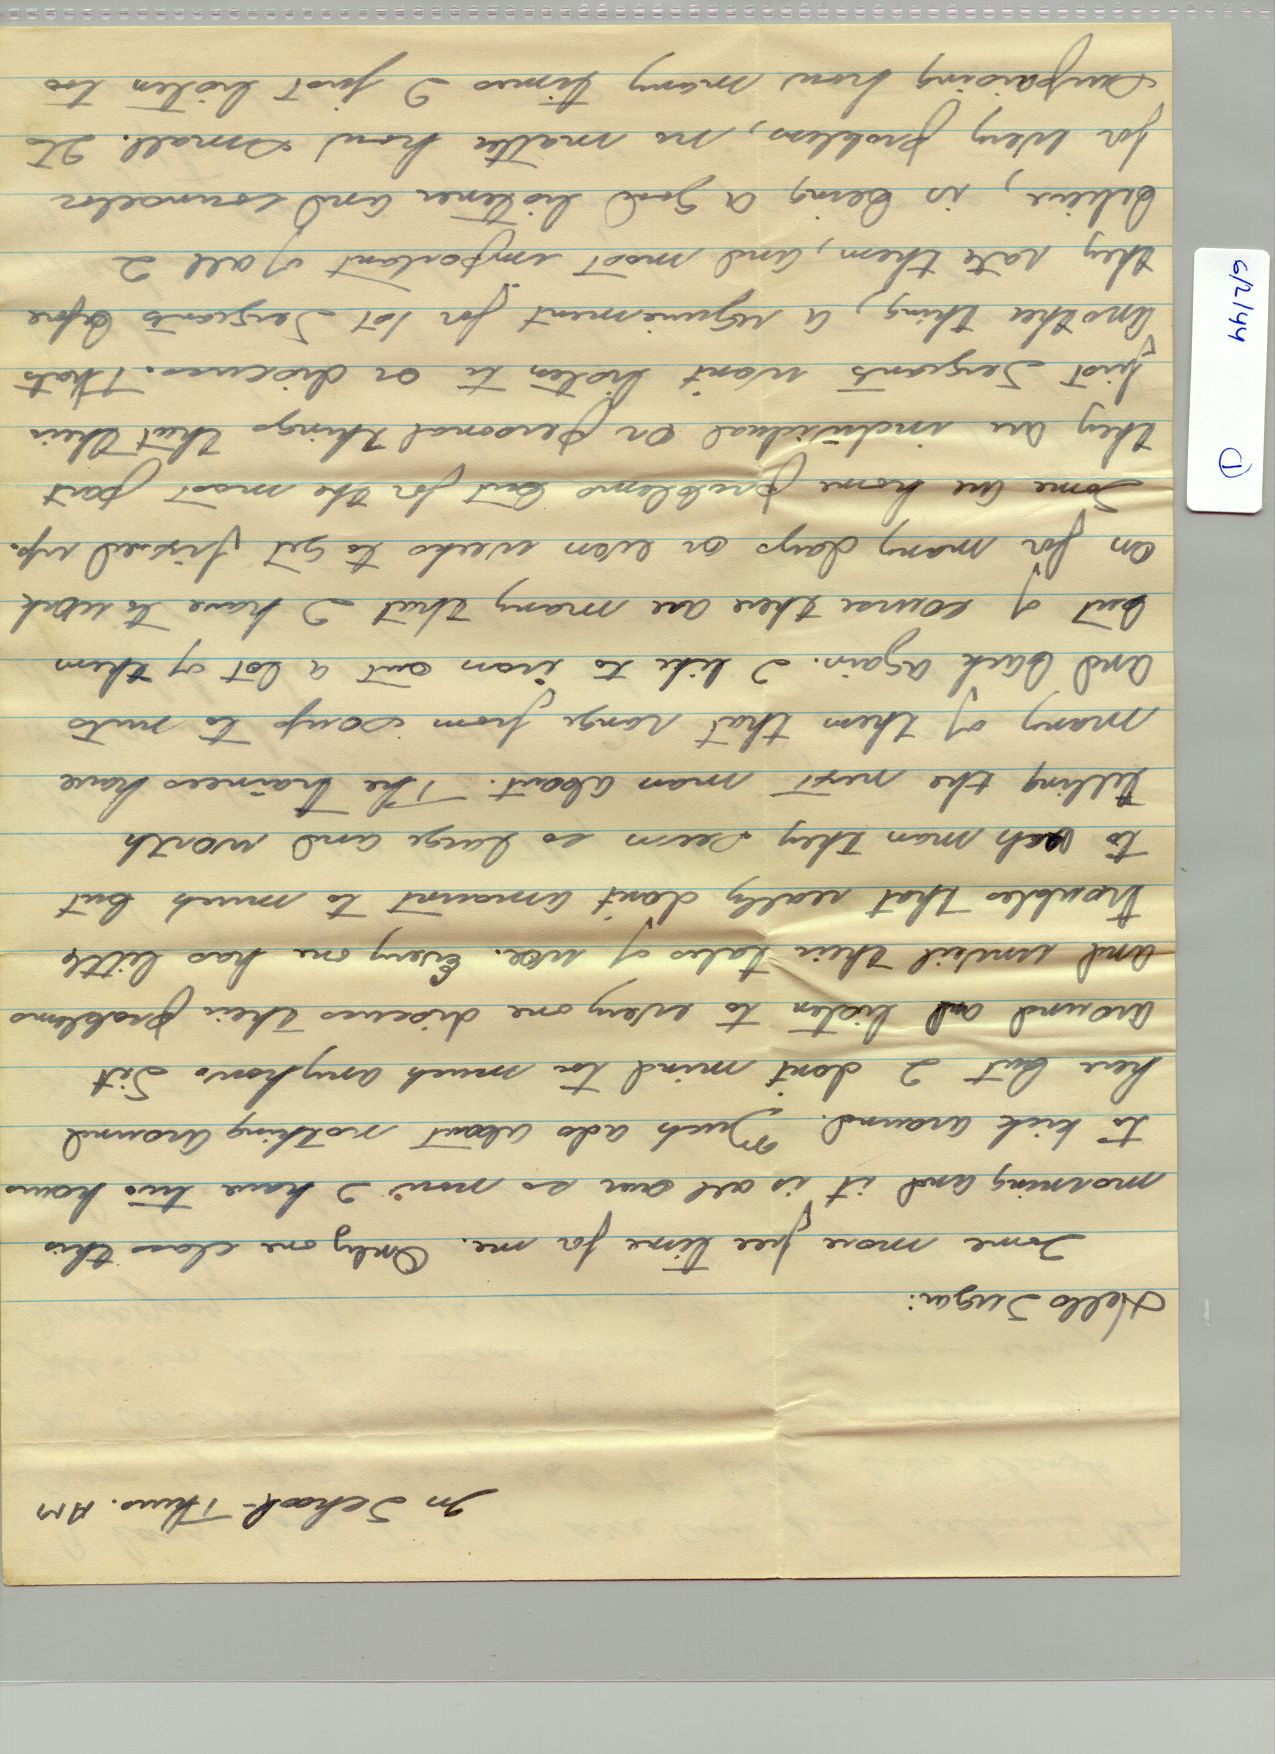 In School - Thurs. AM
Hello Sugar:
Some more free time for me. Only one class this
morning and it is all over so now I have two hours
to kick around. Much ado about nothing around
here but I don't mind too much anyhow. Sit
around and listen to every one discuss their problems
and unveil their tales of woe. Every one has little
troubles that really don't amount to much but
to each man they seem so large and worth
telling the next man about. The trainees have
many of them that range from soup to nuts
and back again. I like to iron out a lot of them
but of course there are many that I have to work
on for many days or even weeks to get fixed up.
Some are home problems but for the most part
they are individual or personal things that their
first Sergeants won't listen to or discuss. Thats
another thing, a requirement for 1st Sergeants before
they rate them, and most important of all I
believe, is being a good listener and counselor
for every problem, no matter how small. It
surprising how many times I just listen too
6/2/44 1